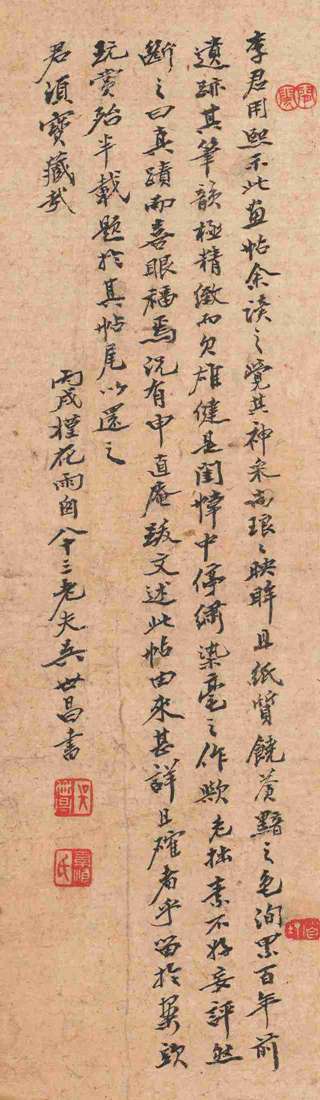 李君用熙示此画帖余读之觉其神采尚琅々映眸且纸質饒黄黯之色洵累百年前
遺跡其筆韻極精緻而欠雄健是閨幃中停繡染毫之作歟老拙素不好妄評然
斷之曰真蹟而喜眼福焉況有申直庵跋文述此帖由來甚詳且確者乎留於案頭
玩賞殆半載題於其帖尾以還之
君須寶藏哉
丙戌槿花雨窗八十三老夫吳世昌書
吳世昌
氏